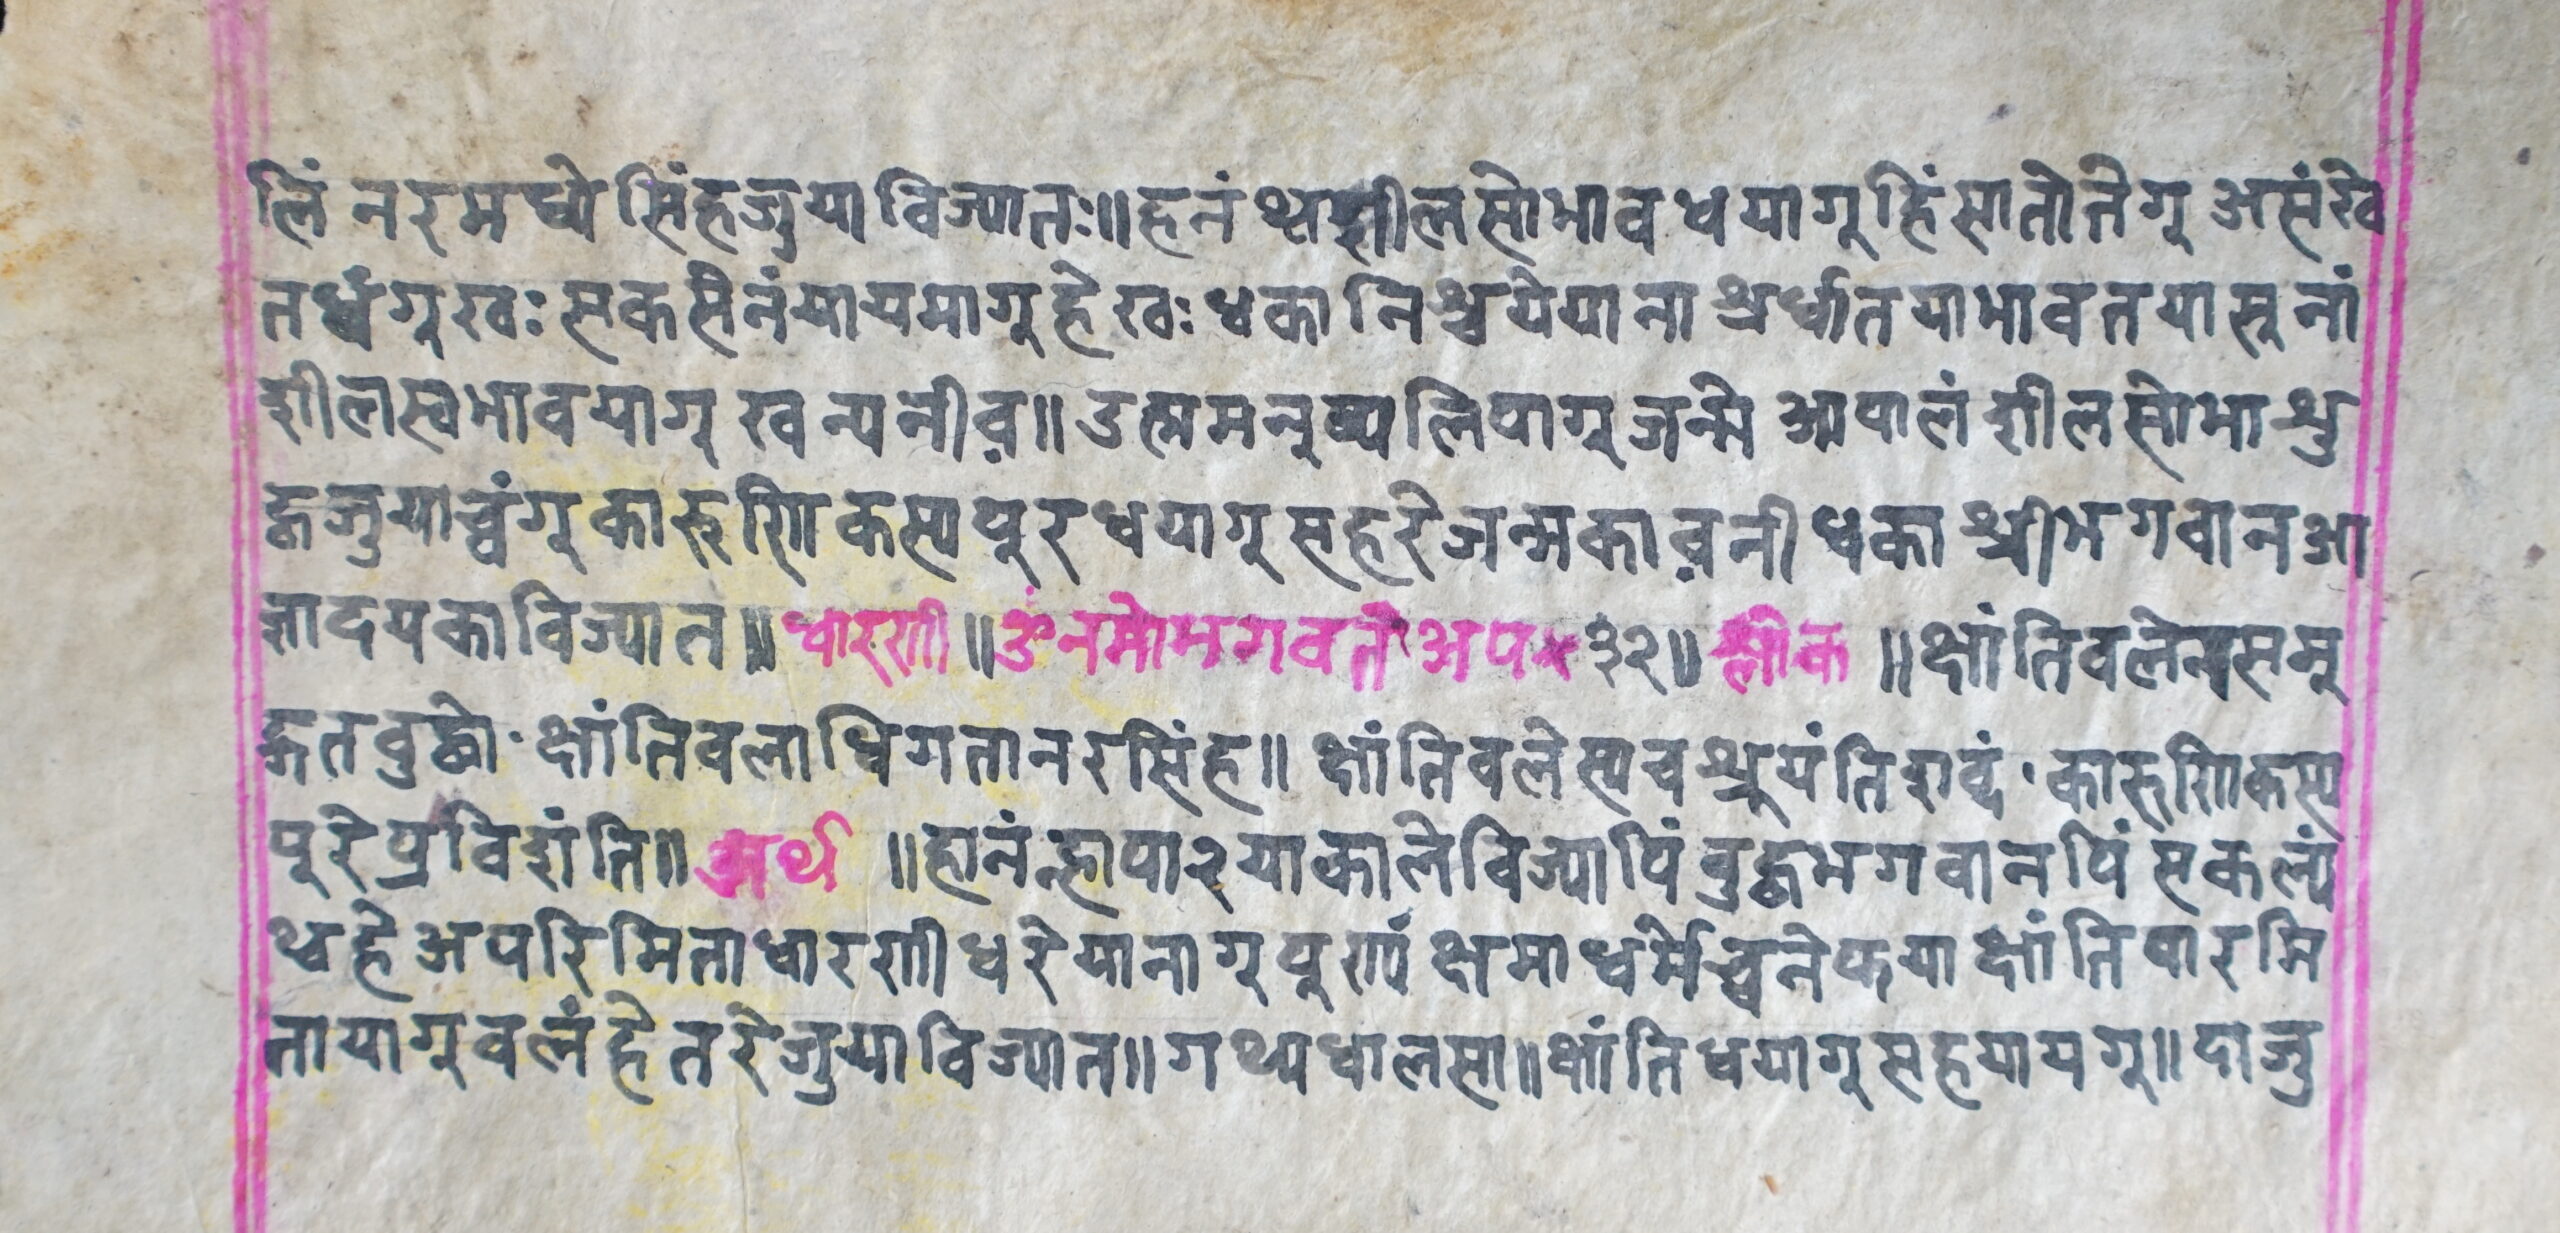 लिं नरमध्ये सिंहजुयाविज्यातः॥हनं थ्वशीलसोभावधयागू हिंसातोतेगू असंख्ये
तर्धंगू खः सकसैनंयायमागू हे खः धका निश्चययेयाना श्रर्धातयाभावतयासूनां
शीलस्वभावयागू खन्यनीव॥ उत्ममनुष्यलिपागू जन्मे आपालं शीलसोभाश्रु
द्धजुयाच्वंगू कारूणिकस्यपूरधयागू सहरे जन्मकावनी धका श्रीभगवानआ
ज्ञादयकाविज्यात॥ धारणी॥ॐनमोभगवते अप× ३२॥ श्लोक ॥क्षांतिवलेनसमू
द्गतवुद्धो· क्षांतिवलाधिगतानरसिंह॥ क्षांतिवलेस्यचश्रूयंतिशव्दं· कारूणिकस्य
पूरेप्रविशंति॥ अर्थ ॥हानंन्हापा२याकालेविज्यापिं वुद्धभगवानपिं सकल्यं
थ्वहे अपरिमिताधारणीधरेयानागू पूर्ण्ण क्षमाधर्मेच्वनेफया क्षांतिपारमि
तायागूवलंहेतरेजुयाविज्यात॥गथ्यधालसा॥क्षांतिधयागू सहयायगू॥दाजु